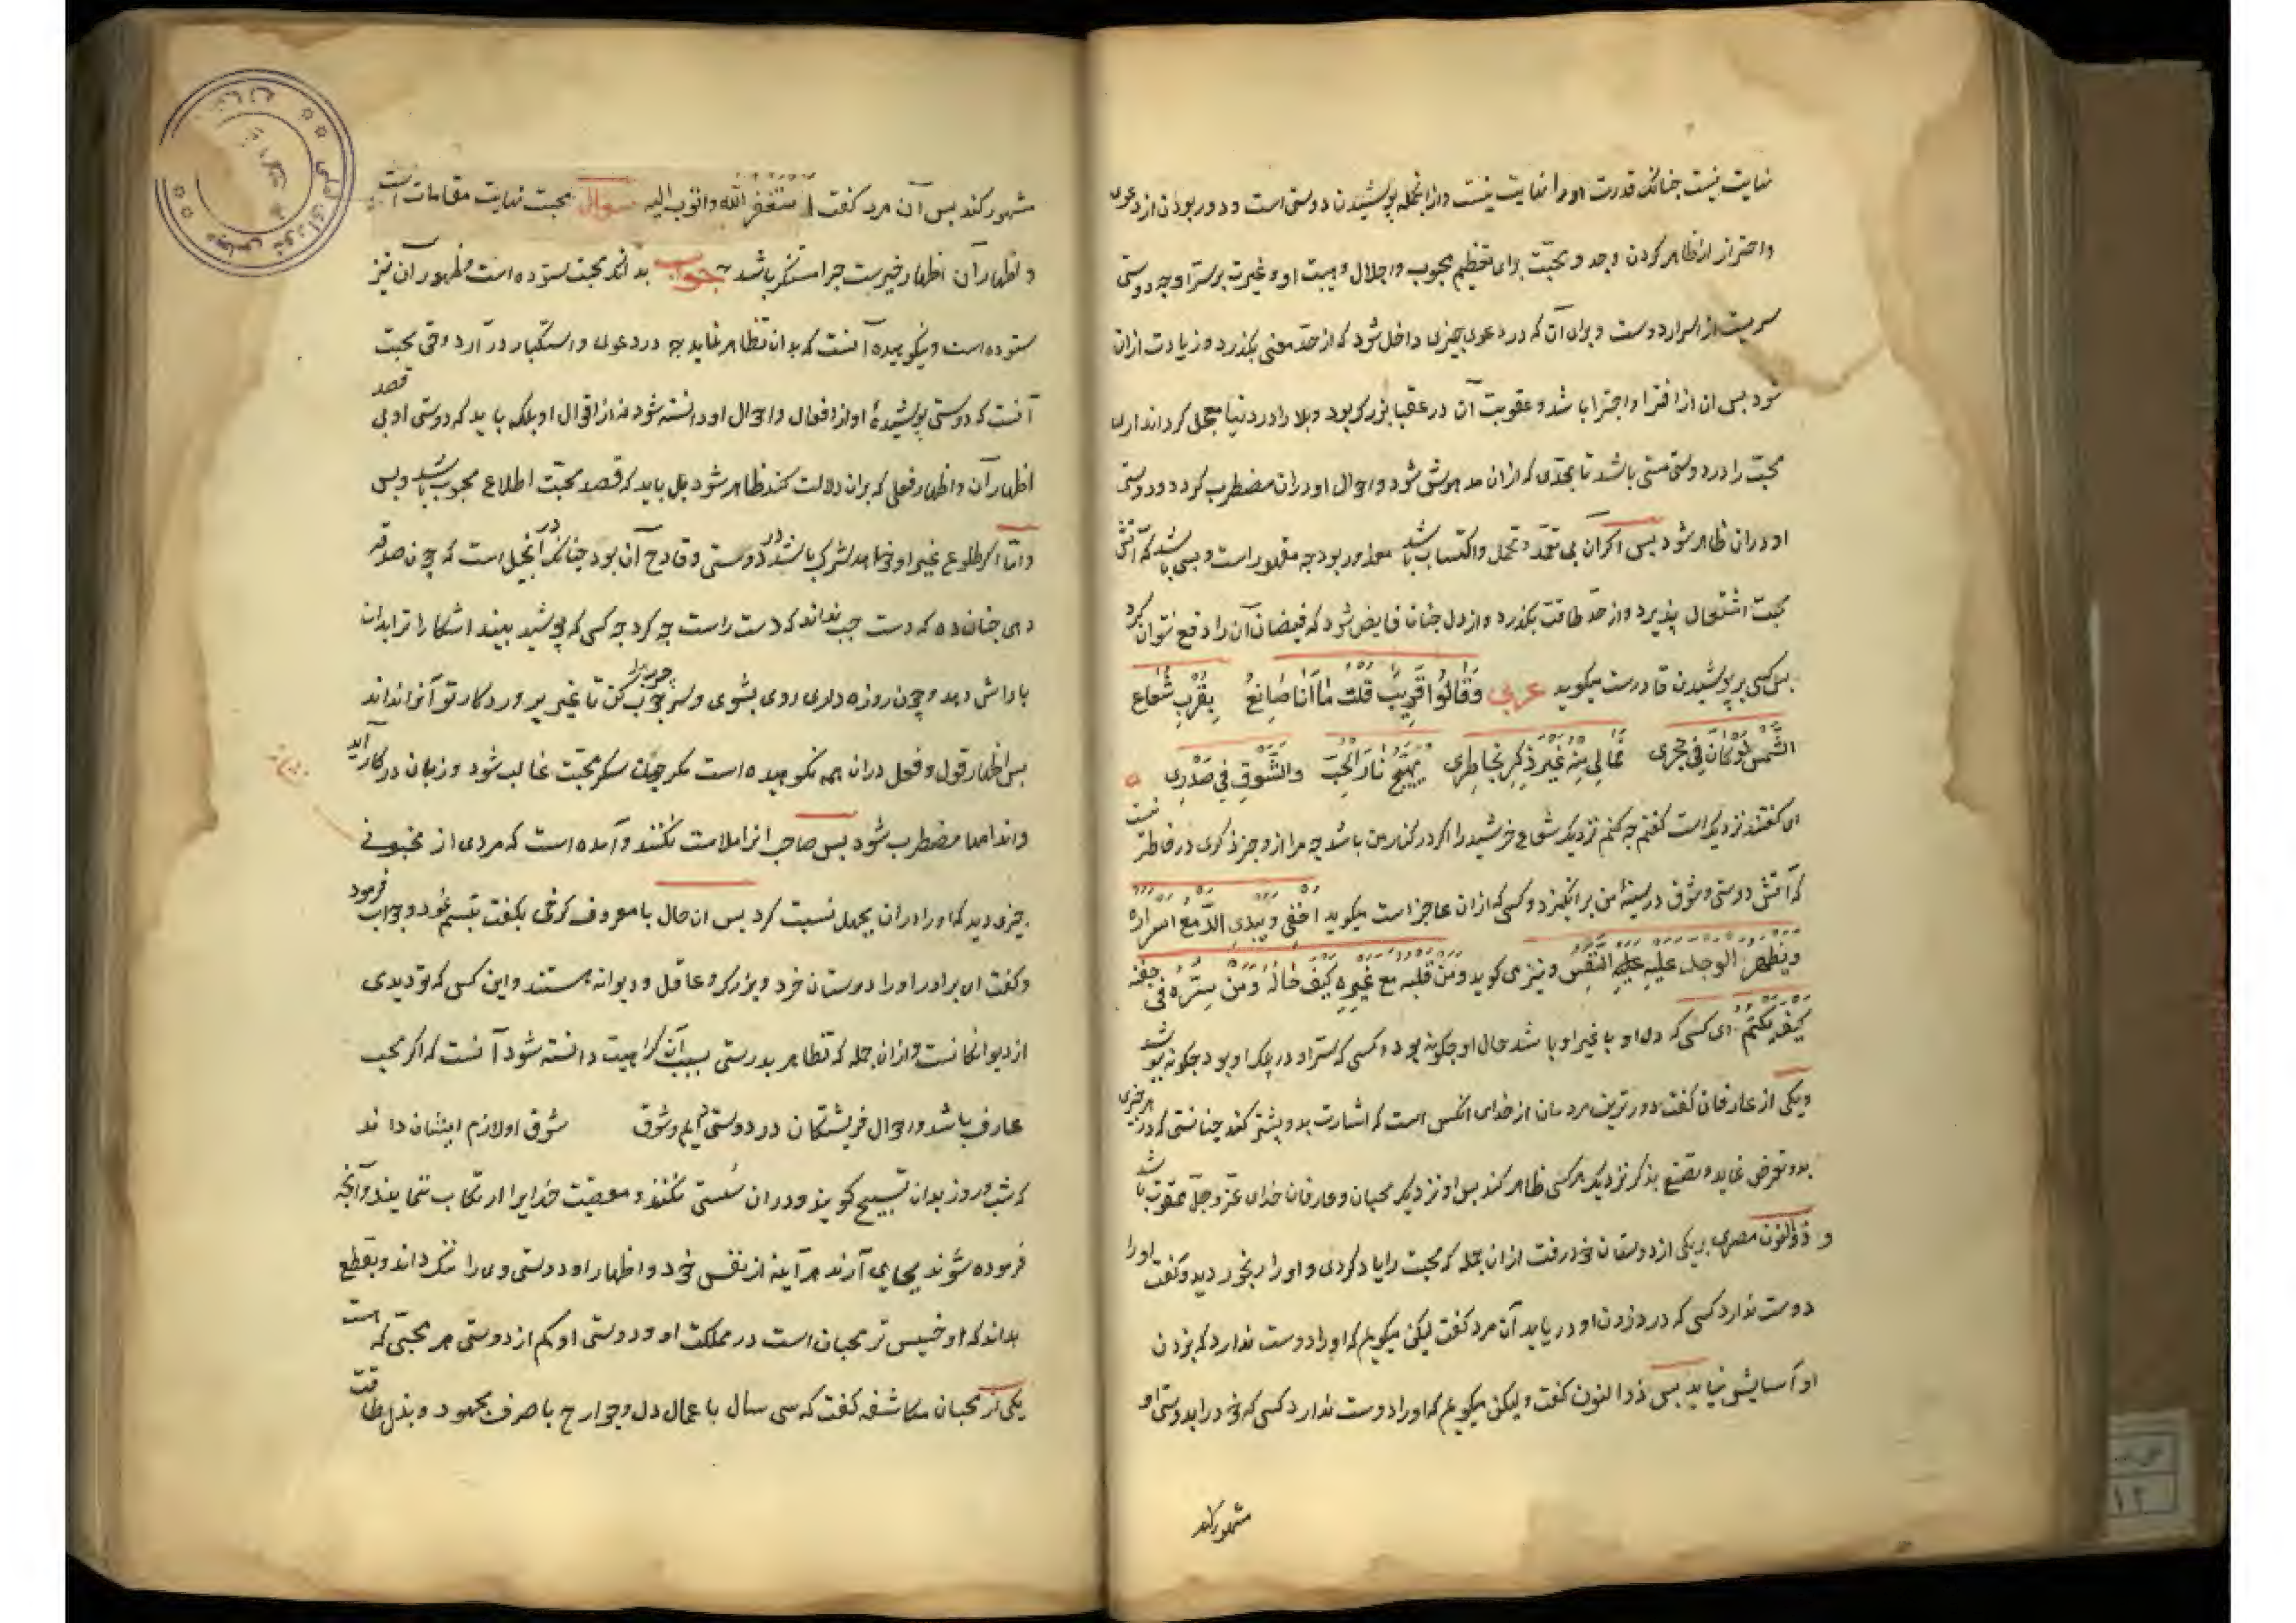 نهایت نیست چنانک قدرت او را نهایت نیست و از انجمله پوشیدن دوستی است و دور بودن از دعوی
و احتراز از ظاهر کردن وجد و محبّت برای تعظیم محبوب و اجلال و هیبت او و غیرت بر سرّ او چه دوستی
سریست از اسرار دوست و برای آن که در دعوی چیزی داخل شود که از حدّ معنی بگذرد و زیادت ازان
شود پس ان از افترا و اجترا باشد و عقوبت آن در عقبا بزرک بود و بلا را در دنیا معجل کرداند اری
محبّ را در دوستی مستی باشد تا بحدّی که ازان مدهوش شود و احوال او دران مضطرب کردد و دوستی
او دران ظاهر شود پس اکر آن بی تعمّد و تمحل و اکتساب باشد معذور بود چه مقهور است و بسی باشد که آتش
محبت اشتعال پذیرد و از حدّ طاقت بکذرد و از دل چنان فایض شود که فیضان آن را دفع نتوان کرد
پس کسی بر پوشیدن قادرست میکوید عربی وَقَالُوا قَرِیبٌ قلت مَا أَنَا صَانِعُ بِقُرْبِ شُعَاعِ
الشَّمْسِ لَوْ كَانَ فِي حِجْرِی فمَالِی مِنْهُ غَیْرَ ذِکرٍ بِخَاطِرِی یُهَیِّجُ نَارَ الْحُبِّ والشَّوْقِ فِي صَدْرِی
ای کفتند نزدیک است کفتم چه کنم نزدیک شعاع خرشید را اکر در کنار من باشد چه مرا ازو جز ذکری در خاطر نیست
که آتش دوستی و شوق در سینهٔ من برانکیزد و کسی که ازان عاجز است میکوید اخفی و یبدی الدّمع اسراره
و یظهر الوجد علیه علیه النّفس و نیز می کوید و مَنْ قلبه مع غیره کیف حاله و مَنْ سرّه فی جفنه
کیف یکتم ای کسی که دل او با غیر او باشد حال او چکونه بود و کسی که سرّ او در پلک او بود چکونه پوشد
و یکی از عارفان کفت دورترین مردمان از خدای انکس است که اشارت بدو بیشتر کند چنانستی که در هر چیزی
بدو تعرض نماید و تصنع بذکر نزدیک هر کسی ظاهر کند پس او نزدیک محبان و عارفان خدای عزّ و جلّ ممقوت باشد
و ذوالنون مصری بر یکی از دوستان خود رفت ازان جمله که محبت را یاد کردی و او را رنجور دید و کفت او را
دوست ندارد کسی که درد زدن او دریابد آن مرد کفت لیکن میکویم که او را دوست ندارد که بزدن
او آسایش نیابد پس ذوالنون کفت و لیکن میکویم که او را دوست ندارد کسی که خود را بدوستی او
مشهور کند
مشهور کند پس آن مرد کفت استغفر الله و اتوب الیه سوال محبت نهایت مقامات است
و اظهار آن اظهار خیریست چرا مستنکر باشد جواب بدانکه محبت ستوده است و ظهور آن نیز
ستوده است و نکوهیده آنست که بدان تظاهر نماید چه در دعوی و استکبار در آرد و حق محبت
آنست که دوستی پوشیدهٔ او از افعال و احوال او دانسته شود نه از اقوال او بلکه باید که دوستی او بی قصد
اظهار آن و اظهار فعلی که بران دلالت کند ظاهر شود بل باید که قصد محبّ اطلاع محبوب باشد و بس
و امّا اکر طلوع غیر او خواهد شرک باشد در دوستی و قادح آن بود چنانک در انجیل است که چون صدقه
دهی چنان ده که دست چپ نداند که دست راست چه کرد چه کسی که پوشید بیند اشکارا ترا بدان
پاداش دهد و چون روزه داری روی بشوی و سر چرب کن تا غیر پروردکار تو آنرا نداند
پس اظهار قول و فعل دران همه نکوهیده است مکر چون سکر محبّت غالب شود و زبان در کار آید
و اندامها مضطرب شود پس صاحب انرا ملامت نکنند و آمده است که مردی از مجنونی
چیزی دید که او را دران بجهل نسبت کرد پس ان حال با معروف کرخی بکفت تبسم نمود و جواب فرمود
و کفت ای برادر او را دوستان خرد و بزرک و عاقل و دیوانه هستند و این کس که تو دیدی
از دیوانکانست و ازان جمله که تظاهر بدوستی بسبب آن کراهیت دانسته شود آنست که اکر محب
عارف باشد و احوال فریشتکان در دوستی دایم و شوق شوق او لازم ایشان داند
که شب و روز بدان تسبیح کویند و دران سُستی نکنند و معصیت خدایرا ارتکاب ننمایند و آنچه
فرموده شوند بجای آرند هر آینه از نفس خود و اظهار او دوستی وی را ننک داند و بقطع
بداند که او خسیس تر محبان است در مملکت او و دوستی او کم از دوستی هر محبّی که است
یکی از محبان مکاشفه کفت که سی سال با عمال دل و جوارح با صرف مجهود و بذل طاقت